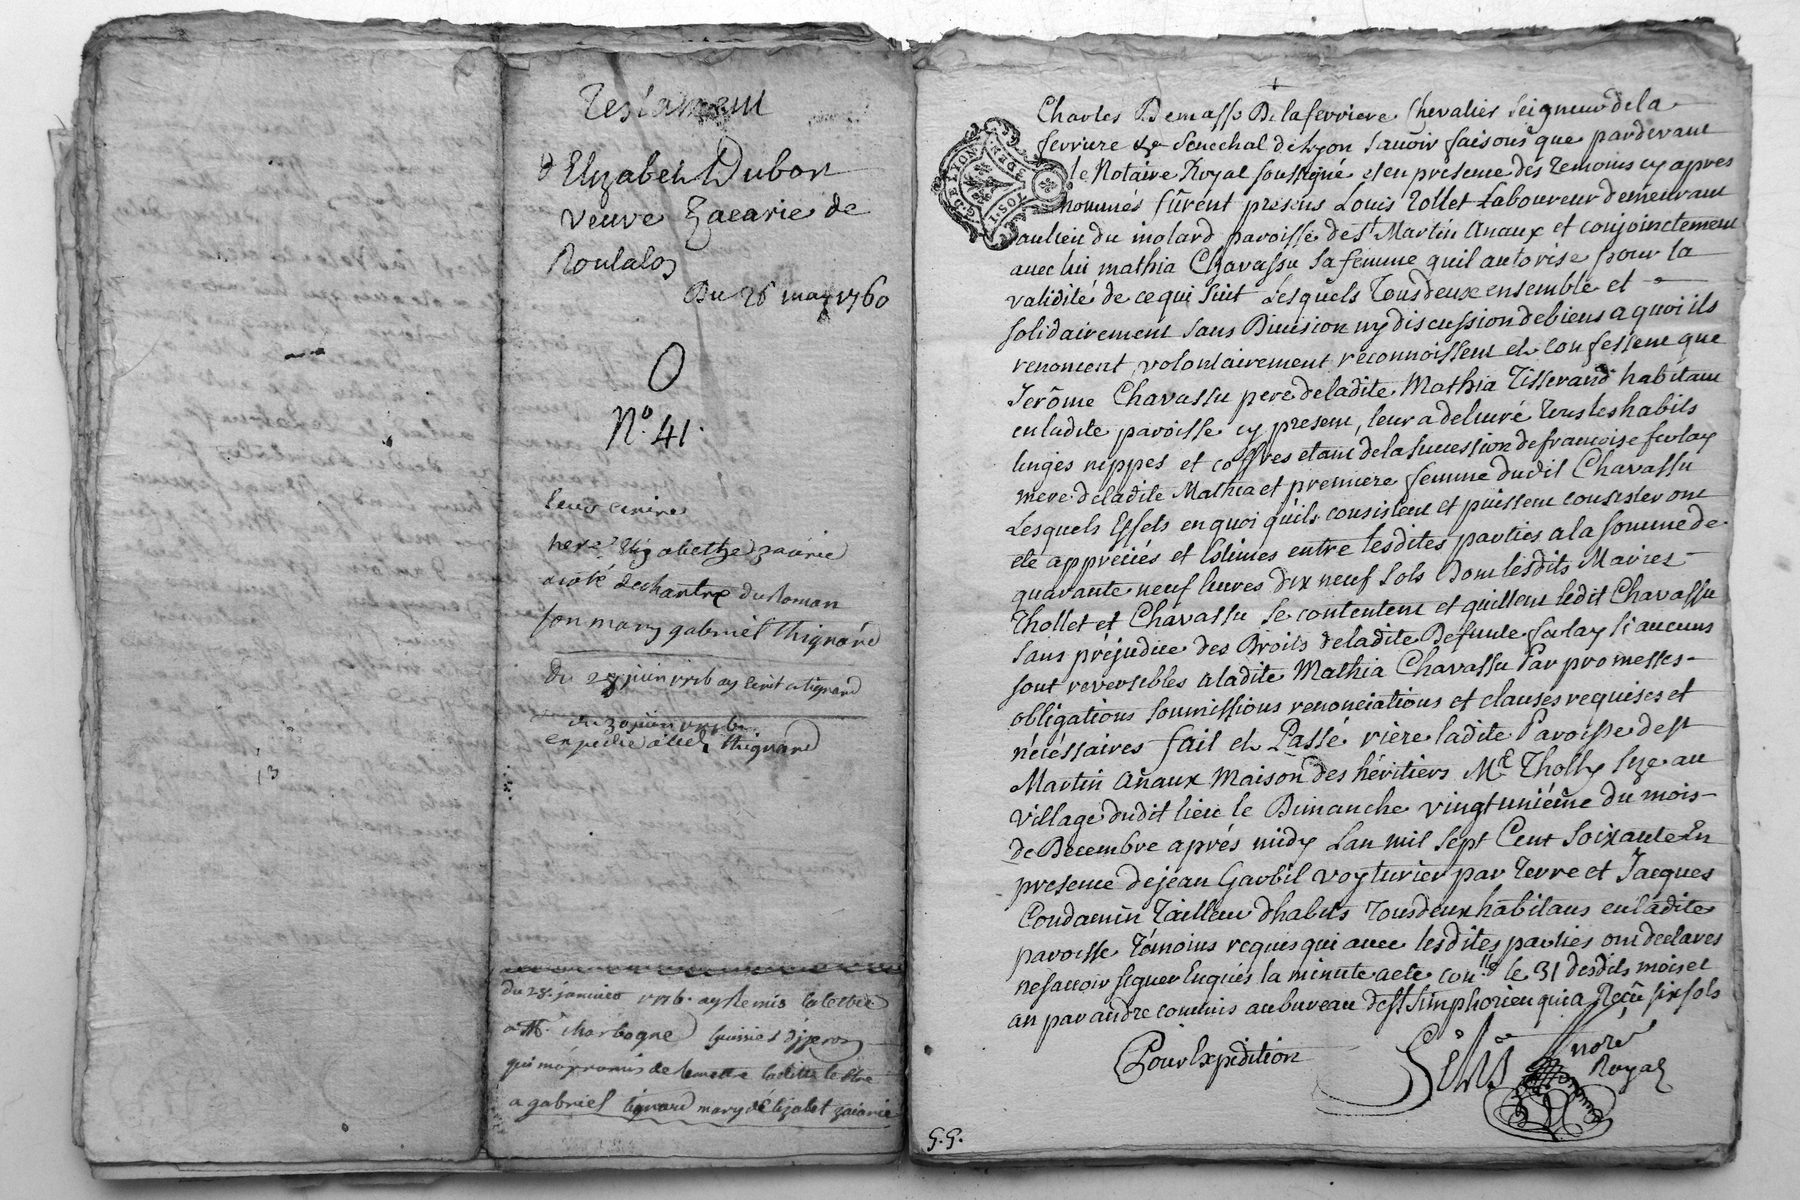 Testament
d'Elizabeth Dubon
veuve Zacarie de
Roulalon
Du 26 may 1760
O
N.° 41.
Elizabethe zacarie
son mary gabriel thignard
Du 28 juin 1776 ay écrit a tignard
du 30 juin 1776
expedié a led. thignard
du 28. janvier 1776. ay remis la lettre
a Mr. charbogne huissier
qui m'a promis de remettre ladite lettre
a gabriel tignard mary dElizabet zacarie
Charles Demasso Delaferriere Chevalier Seigneur dela
ferriere & Senechal de Lyon Savoir faisons que pardevant
le Notaire Royal soussigné et en présence des temoins cy apres
nommés fûrent présens Louis Tollet Laboureur demeurant
au lieu du molard paroisse de St Martin Anaux et conjoinctement
avec lui mathia Chavassu sa femme quil autorise pour la
validité de ce qui suit Lesquels Tous deux ensemble et
solidairement sans Division ny discussion de biens a quoi ils
renoncent volontairement reconnoissent et confessent que
Jerôme Chavassu pere deladite Mathia Tisserand habitant
en ladite paroisse cy present, leur a delivré Tous les habits
linges nippes et coffres etant de la succession de francoise ferlay
mere deladite Mathia et premiere femme dudit Chavassu
Lesquels Effets en quoi quils consistent et puissent consister ont
été appréciés et Estimes entre lesdites parties a la somme de
quarante neuf livres dix neuf sols Dont lesdits Mariez
Thollet et Chavassu se contentent et quittent ledit Chavassu
sans préjudice des Droits deladite Defunte ferlay si aucuns
sont reversibles a ladite Mathia Chavassu Par promesses
obligations soumissions renonciations et clauses requises et
nécéssaires fait et Passé riere ladite Paroisse de st
Martin Anaux Maison des héritiers Me. Tholly size au
village dudit lieu le Dimanche vingt uniéme du mois
de Decembre aprés midy Lan mil sept Cent soixante En
presence de jean Garbil voyturier par Terre et Jacques
Condamin Tailleur dhabits Tous deux habitans en ladite
paroisse Témoins requis qui avec lesdites parties ont declarés
ne savoir signer Enquis la minute a eté conllé le 31 desdits mois et
an par andré commis au bureau de st Simphorien qui a Recû six sols
Pour Expédition
nore
Royal
G. DE LYON
G.G.